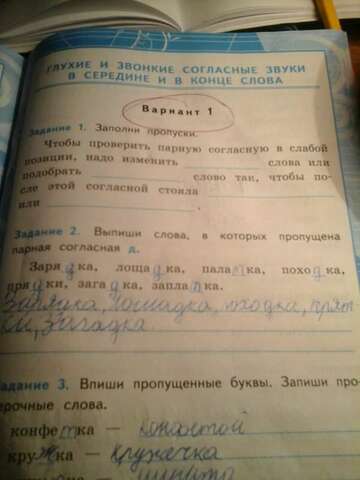 ГЛУХИЕ И ЗВОНКИЕ СОГЛАСНЫЕ ЗВУКИ
В СЕРЕДИНЕ И В КОНЦЕ СЛОВА
Вариант 1
Задание 1. Заполни пропуски.
Чтобы проверить парную согласную в слабой
позиции, надо изменить слова или
подобрать слово так, чтобы по-
сле этой согласной стояла
или
Задание 2. Выпиши слова, в которых пропущена
парная согласная д.
Зарядка, лошадка, палатка, походка,
прядки, загадка, заплатка.
Зарядка, лошадка, походка, пряд
ки, загадка
Задание 3. Впиши пропущенные буквы. Запиши про-
ерочные слова.
конфетка —
кружка — кружечка